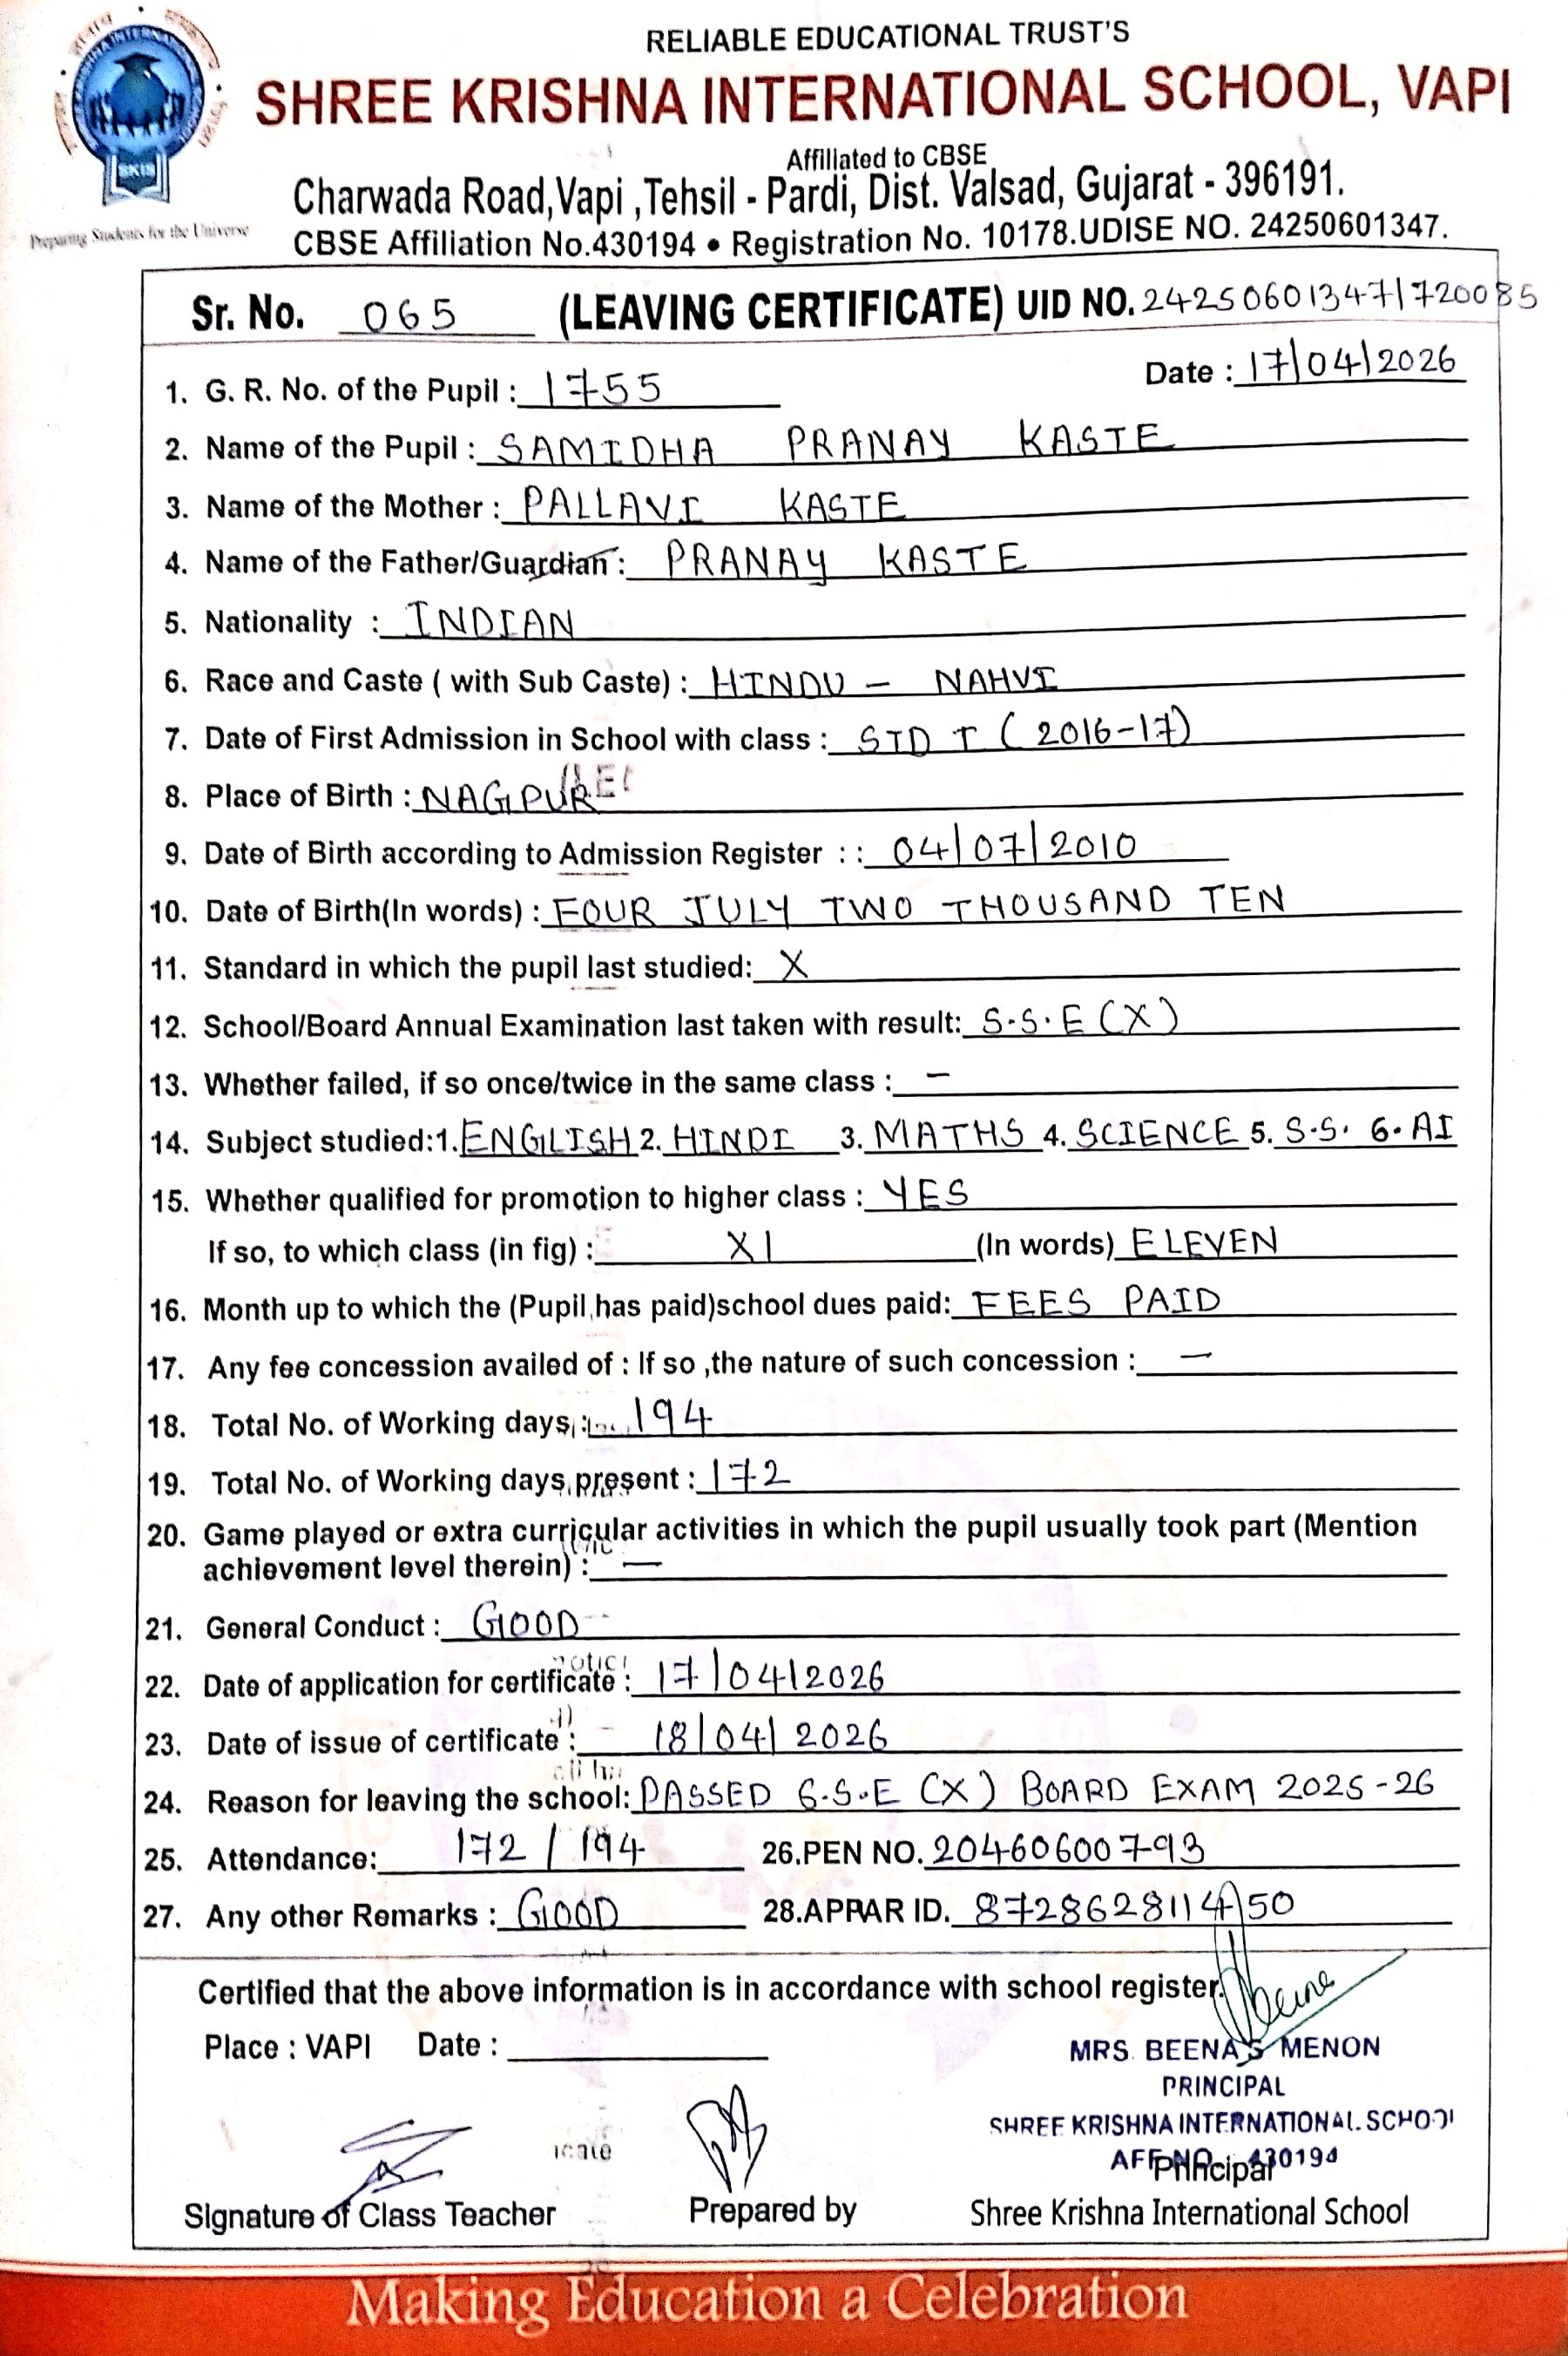 RELIABLE EDUCATIONAL TRUST'S
SHREE KRISHNA INTERNATIONAL SCHOOL, VAPI
Affiliated to CBSE
Charwada Road,Vapi ,Tehsil - Pardi, Dist. Valsad, Gujarat - 396191.
CBSE Affiliation No.430194 • Registration No. 10178.UDISE NO. 24250601347.
SKIS
Preparing Students for the Universe
Sr. No. 065 (LEAVING CERTIFICATE) UID NO. 24250601347/720085
Date : 17/04/2026
1. G. R. No. of the Pupil : 1755
2. Name of the Pupil : SAMIDHA PRANAY KASTE
3. Name of the Mother : PALLAVI KASTE
4. Name of the Father/Guardian : PRANAY KASTE
5. Nationality : INDIAN
6. Race and Caste ( with Sub Caste) : HINDU - NAHVI
7. Date of First Admission in School with class : STD I (2016-17)
8. Place of Birth : NAGPUR
9. Date of Birth according to Admission Register : : 04/07/2010
10. Date of Birth(In words) : FOUR JULY TWO THOUSAND TEN
11. Standard in which the pupil last studied: X
12. School/Board Annual Examination last taken with result: S.S.E (X)
13. Whether failed, if so once/twice in the same class : -
14. Subject studied:1. ENGLISH 2. HINDI 3. MATHS 4. SCIENCE 5. S.S. 6. AI
15. Whether qualified for promotion to higher class : YES
If so, to which class (in fig) : XI (In words) ELEVEN
16. Month up to which the (Pupil has paid)school dues paid: FEES PAID
17. Any fee concession availed of : If so ,the nature of such concession : -
18. Total No. of Working days : 194
19. Total No. of Working days present : 172
20. Game played or extra curricular activities in which the pupil usually took part (Mention
achievement level therein) : -
21. General Conduct : GOOD
22. Date of application for certificate : 17/04/2026
23. Date of issue of certificate : 18/04/2026
24. Reason for leaving the school: PASSED S.S.E (X) BOARD EXAM 2025-26
25. Attendance: 172 / 194 26.PEN NO. 20460600793
27. Any other Remarks : GOOD 28.APPAR ID. 872862811450
Certified that the above information is in accordance with school register.
Place : VAPI Date :
Beena
MRS. BEENA S MENON
PRINCIPAL
SHREE KRISHNA INTERNATIONAL SCHOOL
AFF NO. 430194
Principal
Signature of Class Teacher Prepared by Shree Krishna International School
Making Education a Celebration